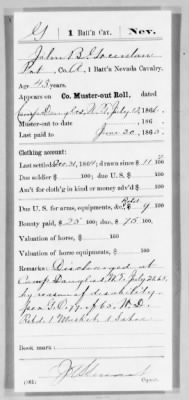 G | 1 Batt'n Cav. | Nev.
John B.
Pvt, Co. A, 1 Batt'n Nevada Cavalry.
Age 43 years.
Appears on Co. Muster-out Roll, dated
Camp Douglas, U.T., July 12, 1866.
Muster-out to date , 186 .
Last paid to June 30, 1865.
Clothing account:
Last settled Dec. 31, 1864; drawn since $ 11
Due soldier $ 100; due U. S. $ 100
Am't for cloth'g in kind or money adv'd $ 100
Due U. S. for arms, equipments, &c., $ 9 100
Bounty paid $ 25 100; due $ 75 100
Valuation of horse, $ 100
Valuation of horse equipments, $ 100
Remarks: Discharged at
Camp Douglas U.T. July 22, 65
by reason of disability
of 65. W. D.
Retd. 1 Musket, 1 Sabre
Book mark:
(861) Copyist.